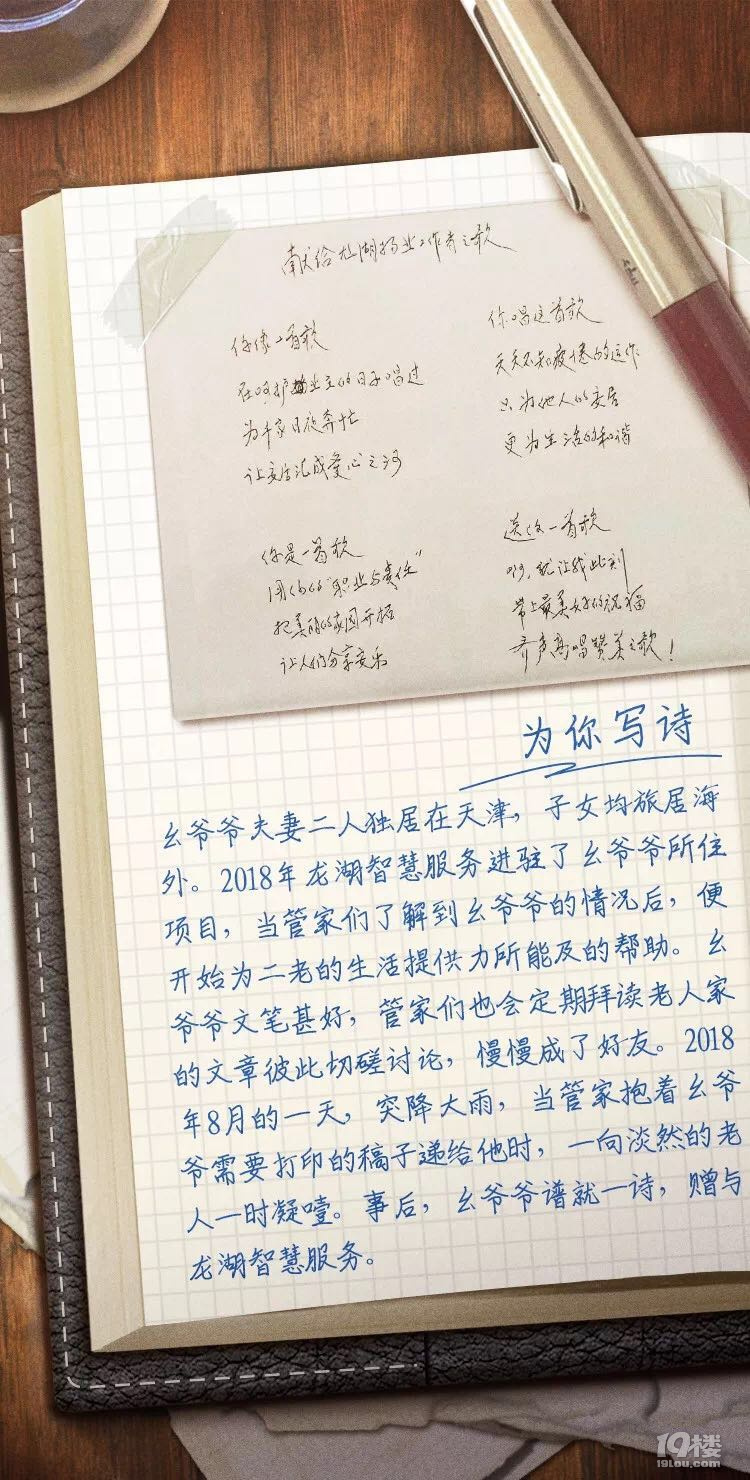 献给龙湖物业工作者之歌
你像一首歌
在呵护业主的日子唱过
为千家日夜奔忙
让安生汇成爱心之河
你是一首歌
用心的“职业与责任”
把美丽的家园开拓
让人们分享安乐
你唱这首歌
天天不知疲惫的运作
只为他人的安居
更为生活的和谐
送你一首歌
啊，就让我此刻
带上最美好的祝福
齐声高唱赞美之歌！
为你写诗
幺爷爷夫妻二人独居在天津，子女均旅居海
外。2018年龙湖智慧服务进驻了幺爷爷所住
项目，当管家们了解到幺爷爷的情况后，便
开始为二老的生活提供力所能及的帮助。幺
爷爷文笔甚好，管家们也会定期拜读老人家
的文章彼此切磋讨论，慢慢成了好友。2018
年8月的一天，突降大雨，当管家抱着幺爷
爷需要打印的稿子递给他时，一向淡然的老
人一时凝噎。事后，幺爷爷谱就一诗，赠与
龙湖智慧服务。
19楼
19lou.com